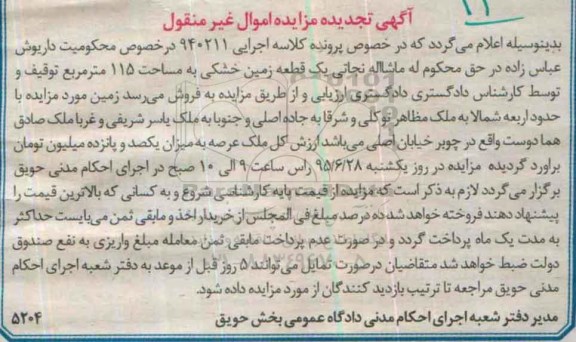 ۱۱
آگهی تجدیده مزایده اموال غیر منقول
بدینوسیله اعلام می‌گردد که در خصوص پرونده کلاسه اجرایی ۹۴۰۲۱۱ درخصوص محکومیت داریوش
عباس زاده در حق محکوم له ماشااله نجاتی یک قطعه زمین خشکی به مساحت ۱۱۵ مترمربع توقیف و
توسط کارشناس دادگستری دادگستری ارزیابی و از طریق مزایده به فروش می‌رسد زمین مورد مزایده با
حدود اربعه شمالا به ملک مظاهر توکلی و شرقا به جاده اصلی و جنوبا به ملک یاسر شریفی و غربا ملک صادق
هما دوست واقع در چوبر خیابان اصلی می‌باشد ارزش کل ملک عرصه به میزان یکصد و پانزده میلیون تومان
براورد گردیده مزایده در روز یکشنبه ۹۵/۶/۲۸ راس ساعت ۹ الی ۱۰ صبح در اجرای احکام مدنی حویق
برگزار می‌گردد لازم به ذکر است که مزایده از قیمت پایه کارشناسی شروع و به کسانی که بالاترین قیمت را
پیشنهاد دهند فروخته خواهد شد ده درصد مبلغ فی المجلس از خریدار اخذ و مابقی ثمن می‌بایست حداکثر
به مدت یک ماه پرداخت گردد و در صورت عدم پرداخت مابقی ثمن معامله مبلغ واریزی به نفع صندوق
دولت ضبط خواهد شد متقاضیان درصورت تمایل می‌توانند ۵ روز قبل از موعد به دفتر شعبه اجرای احکام
مدنی حویق مراجعه تا ترتیب بازدید کنندگان از مورد مزایده داده شود.
مدیر دفتر شعبه اجرای احکام مدنی دادگاه عمومی بخش حویق
۵۲۰۴